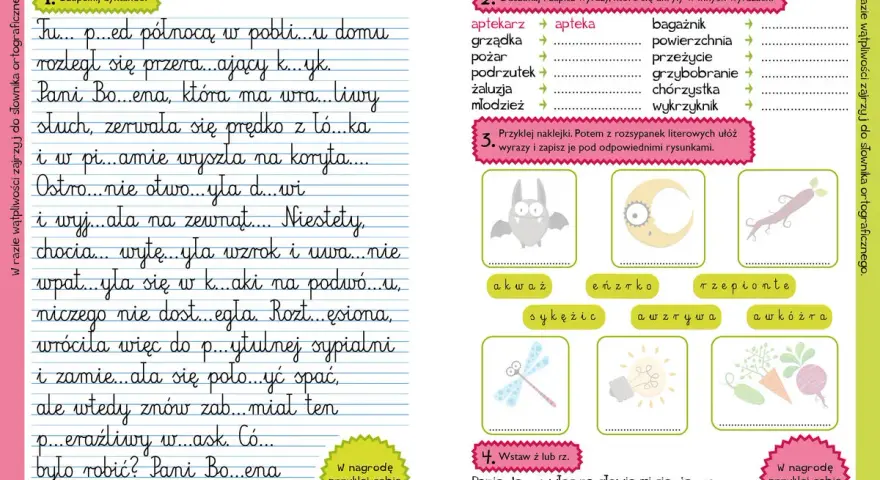 W razie wątpliwości zajrzyj do słownika ortograficzne
1.
Tu... p...ed północą w pobli...u domu
rozległ się przera...ający k...yk.
Pani Bo...ena, która ma wra...liwy
słuch, zerwała się prędko z łó...ka
i w pi...amie wyszła na koryta....
Ostro...nie otwo...yła d...wi
i wyj...ała na zewnąt.... Niestety,
chocia... wytę...yła wzrok i uwa...nie
wpat...yła się w k...aki na podwó...u,
niczego nie dost...egła. Rozt...ęsiona,
wróciła więc do p...ytulnej sypialni
i zamie...ała się poło...yć spać,
ale wtedy znów zab...miał ten
p...eraźliwy w...ask. Có...
było robić? Pani Bo...ena
W nagrodę
2.
aptekarz → apteka
grządka → ....................
pożar → ....................
podrzutek → ....................
żaluzja → ....................
młodzież → ....................
bagażnik → ....................
powierzchnia → ....................
przeżycie → ....................
grzybobranie → ....................
chórzystka → ....................
wykrzyknik → ....................
3. Przyklej naklejki. Potem z rozsypanek literowych ułóż
wyrazy i zapisz je pod odpowiednimi rysunkami.
akważ eńzrko rzepionte
sykężic awzrywa awkóżra
4. Wstaw ż lub rz.
W nagrodę
razie wątpliwości zajrzyj do słownika ortograficznego.